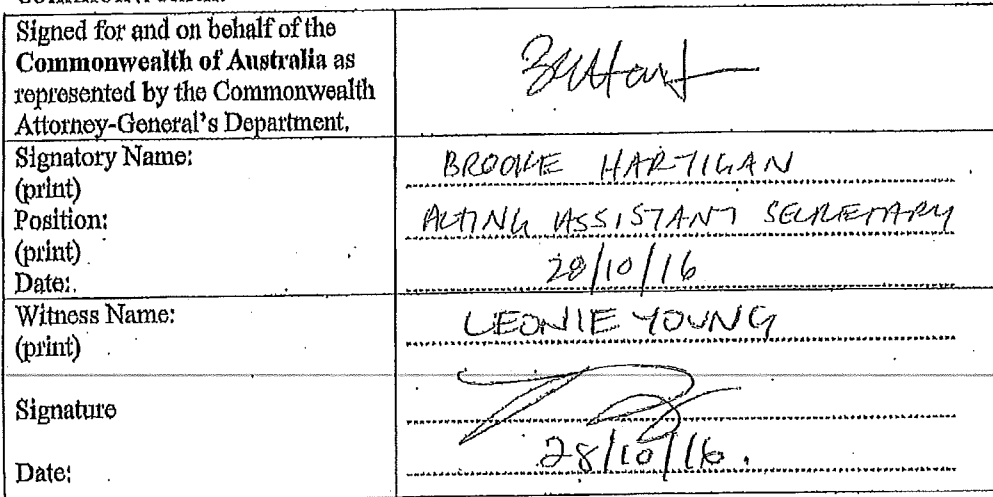 Signed for and on behalf of the
Commonwealth of Australia as
represented by the Commonwealth
Attorney-General's Department.
Signatory Name:
(print)
BROOKE HARTIGAN
Position:
(print)
ACTING ASSISTANT SECRETARY
Date:
28/10/16
Witness Name:
(print)
LEONIE YOUNG
Signature
Date:
28/10/16.